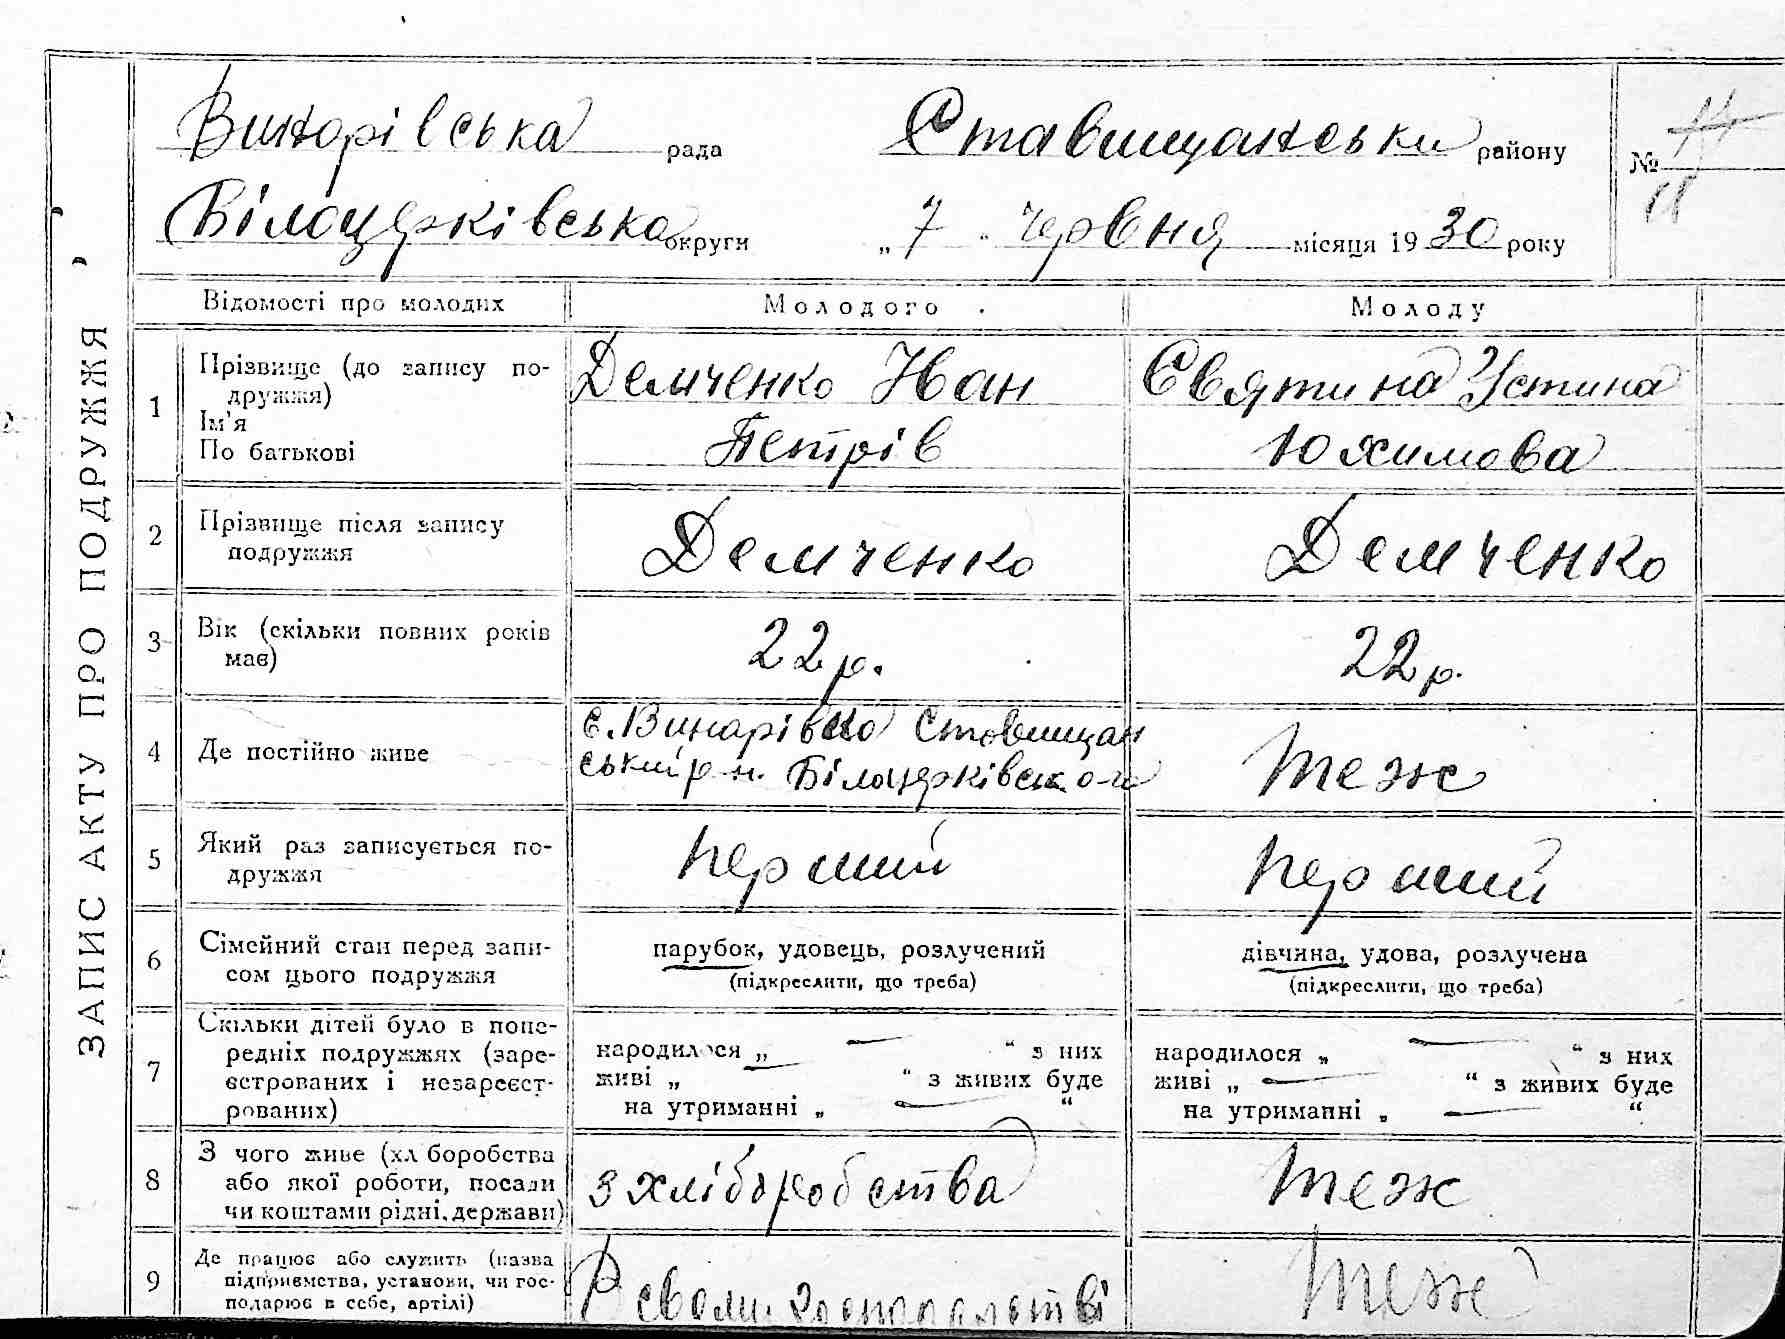 ЗАПИС АКТУ ПРО ПОДРУЖЖЯ
Винарівська рада Ставищанськи району № 14
Білоцерківська округи „7“ червня місяця 1930 року 11
Відомості про молодих Молодого Молоду
1 Прізвище (до запису по-
дружжя)
Ім'я
По батькові
Демченко Іван
Петрів
Святина Устина
Юхимова
2 Прізвище після запису
подружжя
Демченко
Демченко
3 Вік (скільки повних років
має)
22 р.
22 р.
4 Де постійно живе
с. Винарівка Ставищан
ський р-н. Білоцерківськ. о-га
теж
5 Який раз записується по-
дружжя
перший
перший
6 Сімейний стан перед запи-
сом цього подружжя
парубок, удовець, розлучений
(підкреслити, що треба)
дівчина, удова, розлучена
(підкреслити, що треба)
7 Скільки дітей було в попе-
редніх подружжях (заре-
єстрованих і незареєст-
рованих)
народилося „ — “ з них
живі „ — “ з живих буде
на утриманні „ — “
народилося „ — “ з них
живі „ — “ з живих буде
на утриманні „ — “
8 З чого живе (хліборобства
або якої роботи, посади
чи коштами рідні, держави)
з хліборобства
теж
9 Де працює або служить (назва
підприємства, установи, чи гос-
подарює в себе, артілі)
В своєму господарстві
теж